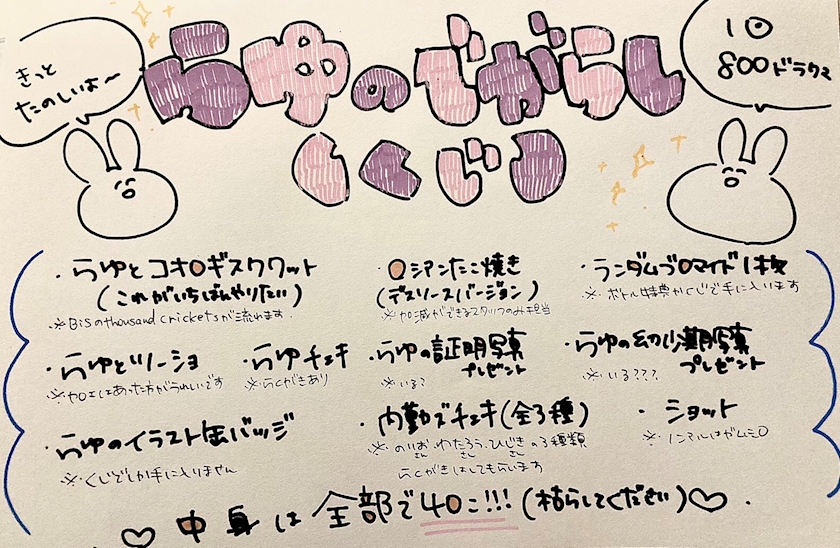 きっと
たのしいよ〜
らゆのでがらし
くじ
1回
800ドラクマ
・らゆとコオロギスクワット
(これがいちばんやりたい)
※BiSのthousand cricketsが流れます.
・ロシアンたこ焼き
(デスソースバージョン)
※加減ができるスタッフのみ担当
・ランダムブロマイド1枚
※ボトル特典かくじで手に入ります
・らゆとツーショ
※加工はあった方がうれしいです
・らゆチェキ
※らくがきあり
・らゆの証明写真
プレゼント
※いる?
・らゆの幼少期写真
プレゼント
※いる???
・らゆのイラスト缶バッジ
※くじでしか手に入りません
・内勤ズチェキ(全3種)
※のりおさん、わたろうさん、ひじきさんの3種類
らくがきはしてもらいます
・ショット
※ノンアルはガムシロ
♡中身は全部で40こ!!!(枯らしてください)♡.